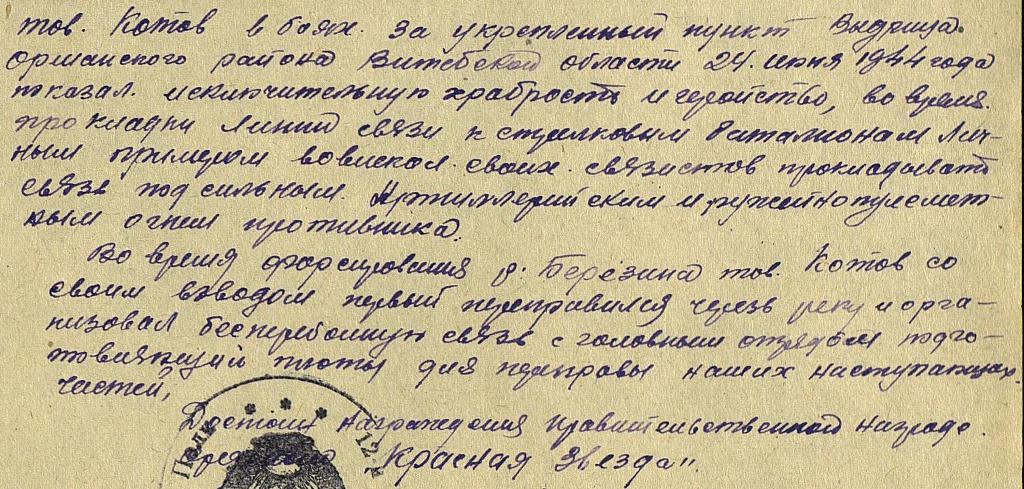 тов. Котов в боях за укрепленный пункт Выдрица
Оршанского района Витебской области 24 июня 1944 года
показал исключительную храбрость и геройство, во время
прокладки линий связи к стрелковым баталионам лич-
ным примером вовлекал своих связистов прокладывать
связь под сильным артиллерийским и ружейнопулемет-
ным огнем противника.
Во время форсирования р. Березина тов. Котов со
своим взводом первый переправился через реку и орга-
низовал бесперебойную связь с головным отрядом подго-
товляющий плоты для переправы наших наступающих
частей,
Достоин награждения правительственной награде
"Красная Звезда".